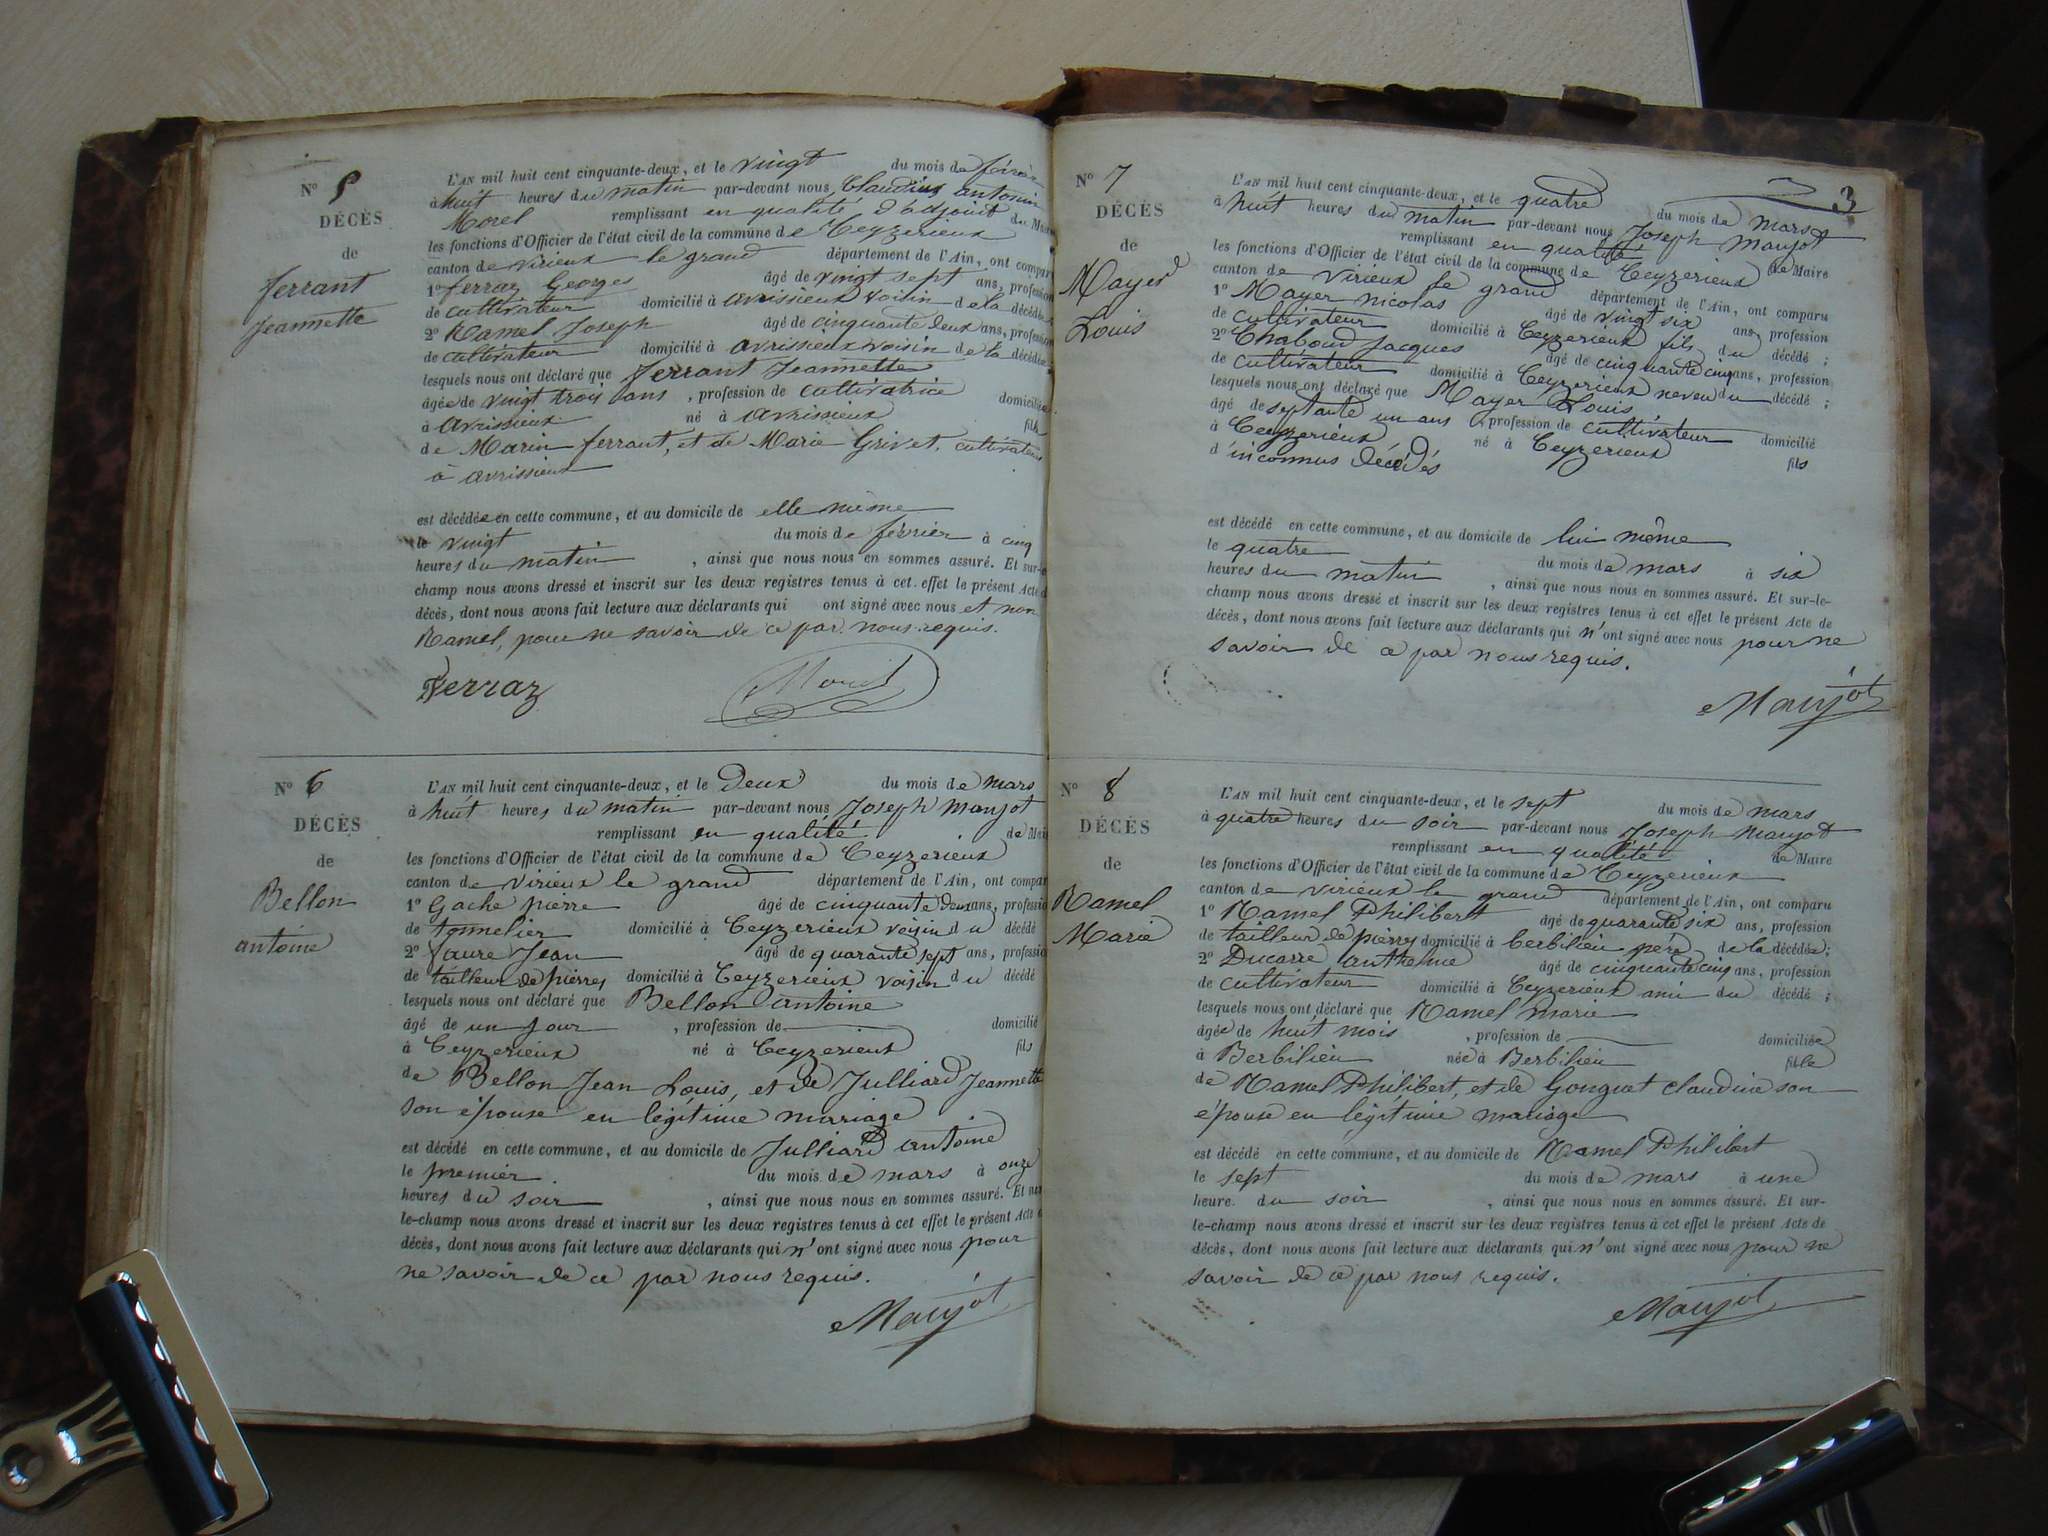 N° 5
DÉCÈS
de
ferrant
Jeannette
L'AN mil huit cent cinquante-deux, et le vingt du mois de
à huit heures du matin par-devant nous Claudius antonin
Morel remplissant en qualité d'adjoint du
les fonctions d'Officier de l'état civil de la commune de Ceyzerieux
canton de virieux le grand département de l'Ain, ont compar
1° ferraz Georges âgé de vingt sept ans, profession
de cultivateur domicilié à avrissieux voisin de la décédée
2° Ramel Joseph âgé de cinquante deux ans, profession
de cultivateur domicilié à avrissieux voisin de la décédée
lesquels nous ont déclaré que ferrant Jeannette
âgée de vingt trois ans , profession de cultivatrice domiciliée
à avrissieux né à avrissieux fille
de Marin ferrant, et de Marie Grivet, cultivateurs
à avrissieux
est décédée en cette commune, et au domicile de elle même
le vingt du mois de février à cinq
heures du matin , ainsi que nous nous en sommes assuré. Et sur-
champ nous avons dressé et inscrit sur les deux registres tenus à cet effet le présent Acte
décès, dont nous avons fait lecture aux déclarants qui ont signé avec nous et non
Ramel, pour ne savoir de ce par nous requis.
Ferraz Morel
N° 6
DÉCÈS
de
Bellon
antoine
L'AN mil huit cent cinquante-deux, et le Deux du mois de mars
à huit heures du matin par-devant nous Joseph Maujot
remplissant en qualité de
les fonctions d'Officier de l'état civil de la commune de Ceyzerieux
canton de virieux le grand département de l'Ain, ont compar
1° Gache pierre âgé de cinquante deux ans, professio
de tonnelier domicilié à Ceyzerieux voisin du décédé
2° faure Jean âgé de quarante sept ans, professio
de tailleur de pierres domicilié à Ceyzerieux voisin du décédé
lesquels nous ont déclaré que Bellon antoine
âgé de un jour , profession de domicilié
à Ceyzerieux né à Ceyzerieux fils
de Bellon Jean Louis, et de Julliard Jeannette
son épouse en légitime mariage
est décédé en cette commune, et au domicile de Julliard antoine
le premier du mois de mars à onze
heures du soir , ainsi que nous nous en sommes assuré. Et
le-champ nous avons dressé et inscrit sur les deux registres tenus à cet effet le présent Acte
décès, dont nous avons fait lecture aux déclarants qui n'ont signé avec nous pour
ne savoir de ce par nous requis.
Maujot
3
N° 7
DÉCÈS
de
Mayer
Louis
L'AN mil huit cent cinquante-deux, et le quatre du mois de mars
à huit heures du matin par-devant nous Joseph Maujot
remplissant en qualité de Maire
les fonctions d'Officier de l'état civil de la commune de Ceyzerieux
canton de virieux le grand département de l'Ain, ont comparu
1° Mayer nicolas âgé de vingt six ans, profession
de cultivateur domicilié à Ceyzerieux fils du décédé ;
2° Chaboud Jacques âgé de cinquante cinq ans, profession
de cultivateur domicilié à Ceyzerieux neveu du décédé ;
lesquels nous ont déclaré que Mayer Louis
âgé de septante un ans , profession de cultivateur domicilié
à Ceyzerieux né à Ceyzerieux fils
d'inconnus décédés
est décédé en cette commune, et au domicile de lui même
le quatre du mois de mars à six
heures du matin , ainsi que nous nous en sommes assuré. Et sur-le-
champ nous avons dressé et inscrit sur les deux registres tenus à cet effet le présent Acte de
décès, dont nous avons fait lecture aux déclarants qui n'ont signé avec nous pour ne
savoir de ce par nous requis.
Maujot
N° 8
DÉCÈS
de
Ramel
Marie
L'AN mil huit cent cinquante-deux, et le sept du mois de mars
à quatre heures du soir par-devant nous Joseph Maujot
remplissant en qualité de Maire
les fonctions d'Officier de l'état civil de la commune de Ceyzerieux
canton de virieux le grand département de l'Ain, ont comparu
1° Ramel Philibert âgé de quarante six ans, profession
de tailleur de pierres domicilié à berbilieu père de la décédée ;
2° Ducarre anthelme âgé de cinquante cinq ans, profession
de cultivateur domicilié à Ceyzerieux ami du décédé ;
lesquels nous ont déclaré que Ramel marie
âgée de huit mois , profession de domiciliée
à Berbilieu née à Berbilieu fille
de Ramel Philibert, et de Gonguet claudine son
épouse en légitime mariage
est décédé en cette commune, et au domicile de Ramel Philibert
le sept du mois de mars à une
heure du soir , ainsi que nous nous en sommes assuré. Et sur-
le-champ nous avons dressé et inscrit sur les deux registres tenus à cet effet le présent Acte de
décès, dont nous avons fait lecture aux déclarants qui n'ont signé avec nous pour ne
savoir de ce par nous requis.
Maujot